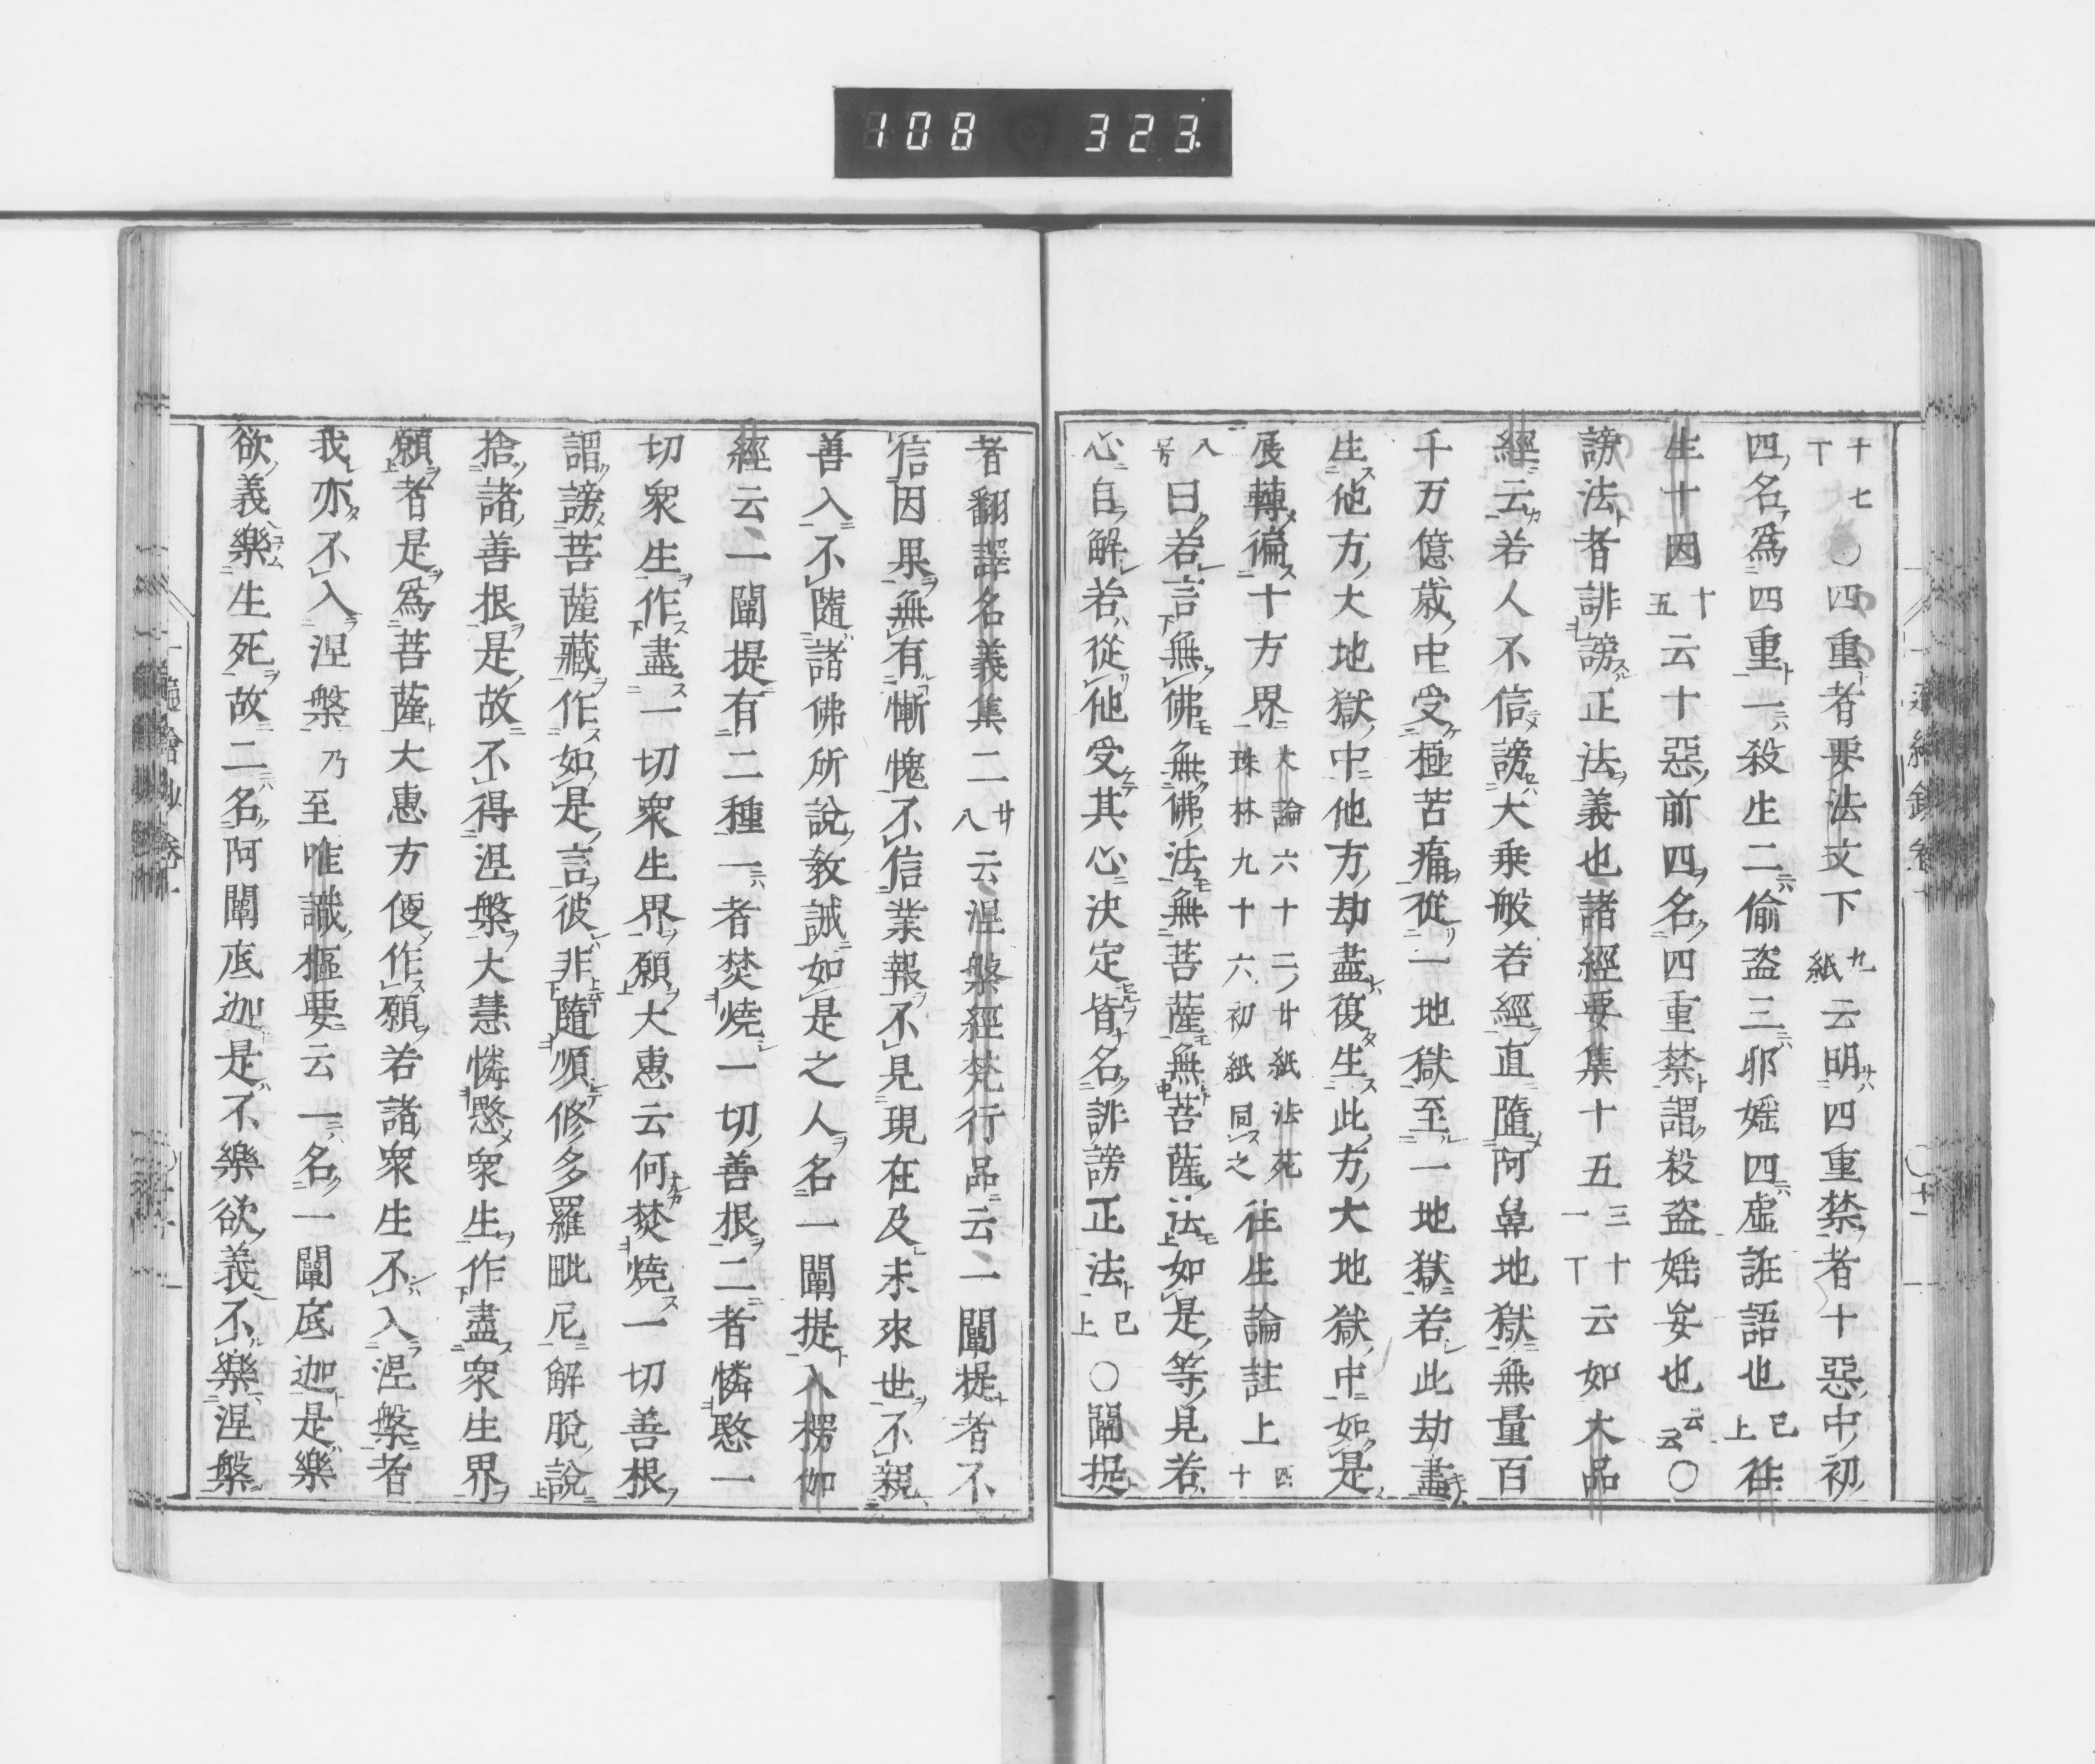 108 323
十七丁○四重者要法文下九紙云明四重禁者十惡中初
四名爲四重一殺生二偷盗三邪婬四虛誑語也已上往
生十因十五云十惡前四名四重禁謂殺盗婬妄也云云○
謗法者誹謗正法義也諸經要集十五三十一丁云如大品
經云若人不信謗大乗般若經直隨阿鼻地獄無量百
千万億歳中受極苦痛從一地獄至一地獄若此劫盡
生他方大地獄中他方劫盡復生此方大地獄中如是
展轉徧十方界大論六十二廿紙法苑珠林九十六初紙同之往生論註上十四
八旁曰若言無佛無佛法無菩薩無菩薩法如是等見若
心自解若從他受其心决定皆名誹謗正法已上○闡提
者翻譯名義集二廿八云涅槃經梵行品云一闡提者不
信因果無有慚愧不信業報不見現在及未來世不親
善入不隨諸佛所說敎誡如是之人名一闡提入楞伽
經云一闡提有二種一者焚燒一切善根二者憐愍一
切衆生作盡一切衆生界願大惠云何焚燒一切善根
謂謗菩薩藏作如是言彼非隨順修多羅毗尼解脫說
捨諸善根是故不得涅槃大慧憐愍衆生作盡衆生界
願者是爲菩薩大惠方便作願若諸衆生不入涅槃者
我亦不入涅槃乃至唯識樞要云一名一闡底迦是樂
欲義樂生死故二名阿闡底迦是不樂欲義不樂涅槃